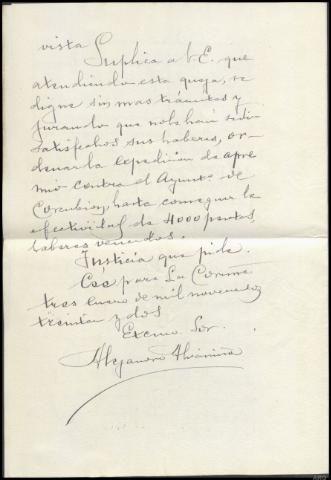 vista Suplica a V.E. que
atendiendo esta queja, se
digne sin mas trámites y
jurando que no le han sido
satisfechos sus haberes, or-
denar la expedición de apre-
mio contra el Ayunto de
Corcubion, hasta conseguir la
efectividad de 4000 pesetas
haberes vencidos.
Justicia que pide.
Cée para La Coruña
tres Enero de mil novecientos
treinta y dos
Excmo Sor.
Alejandro